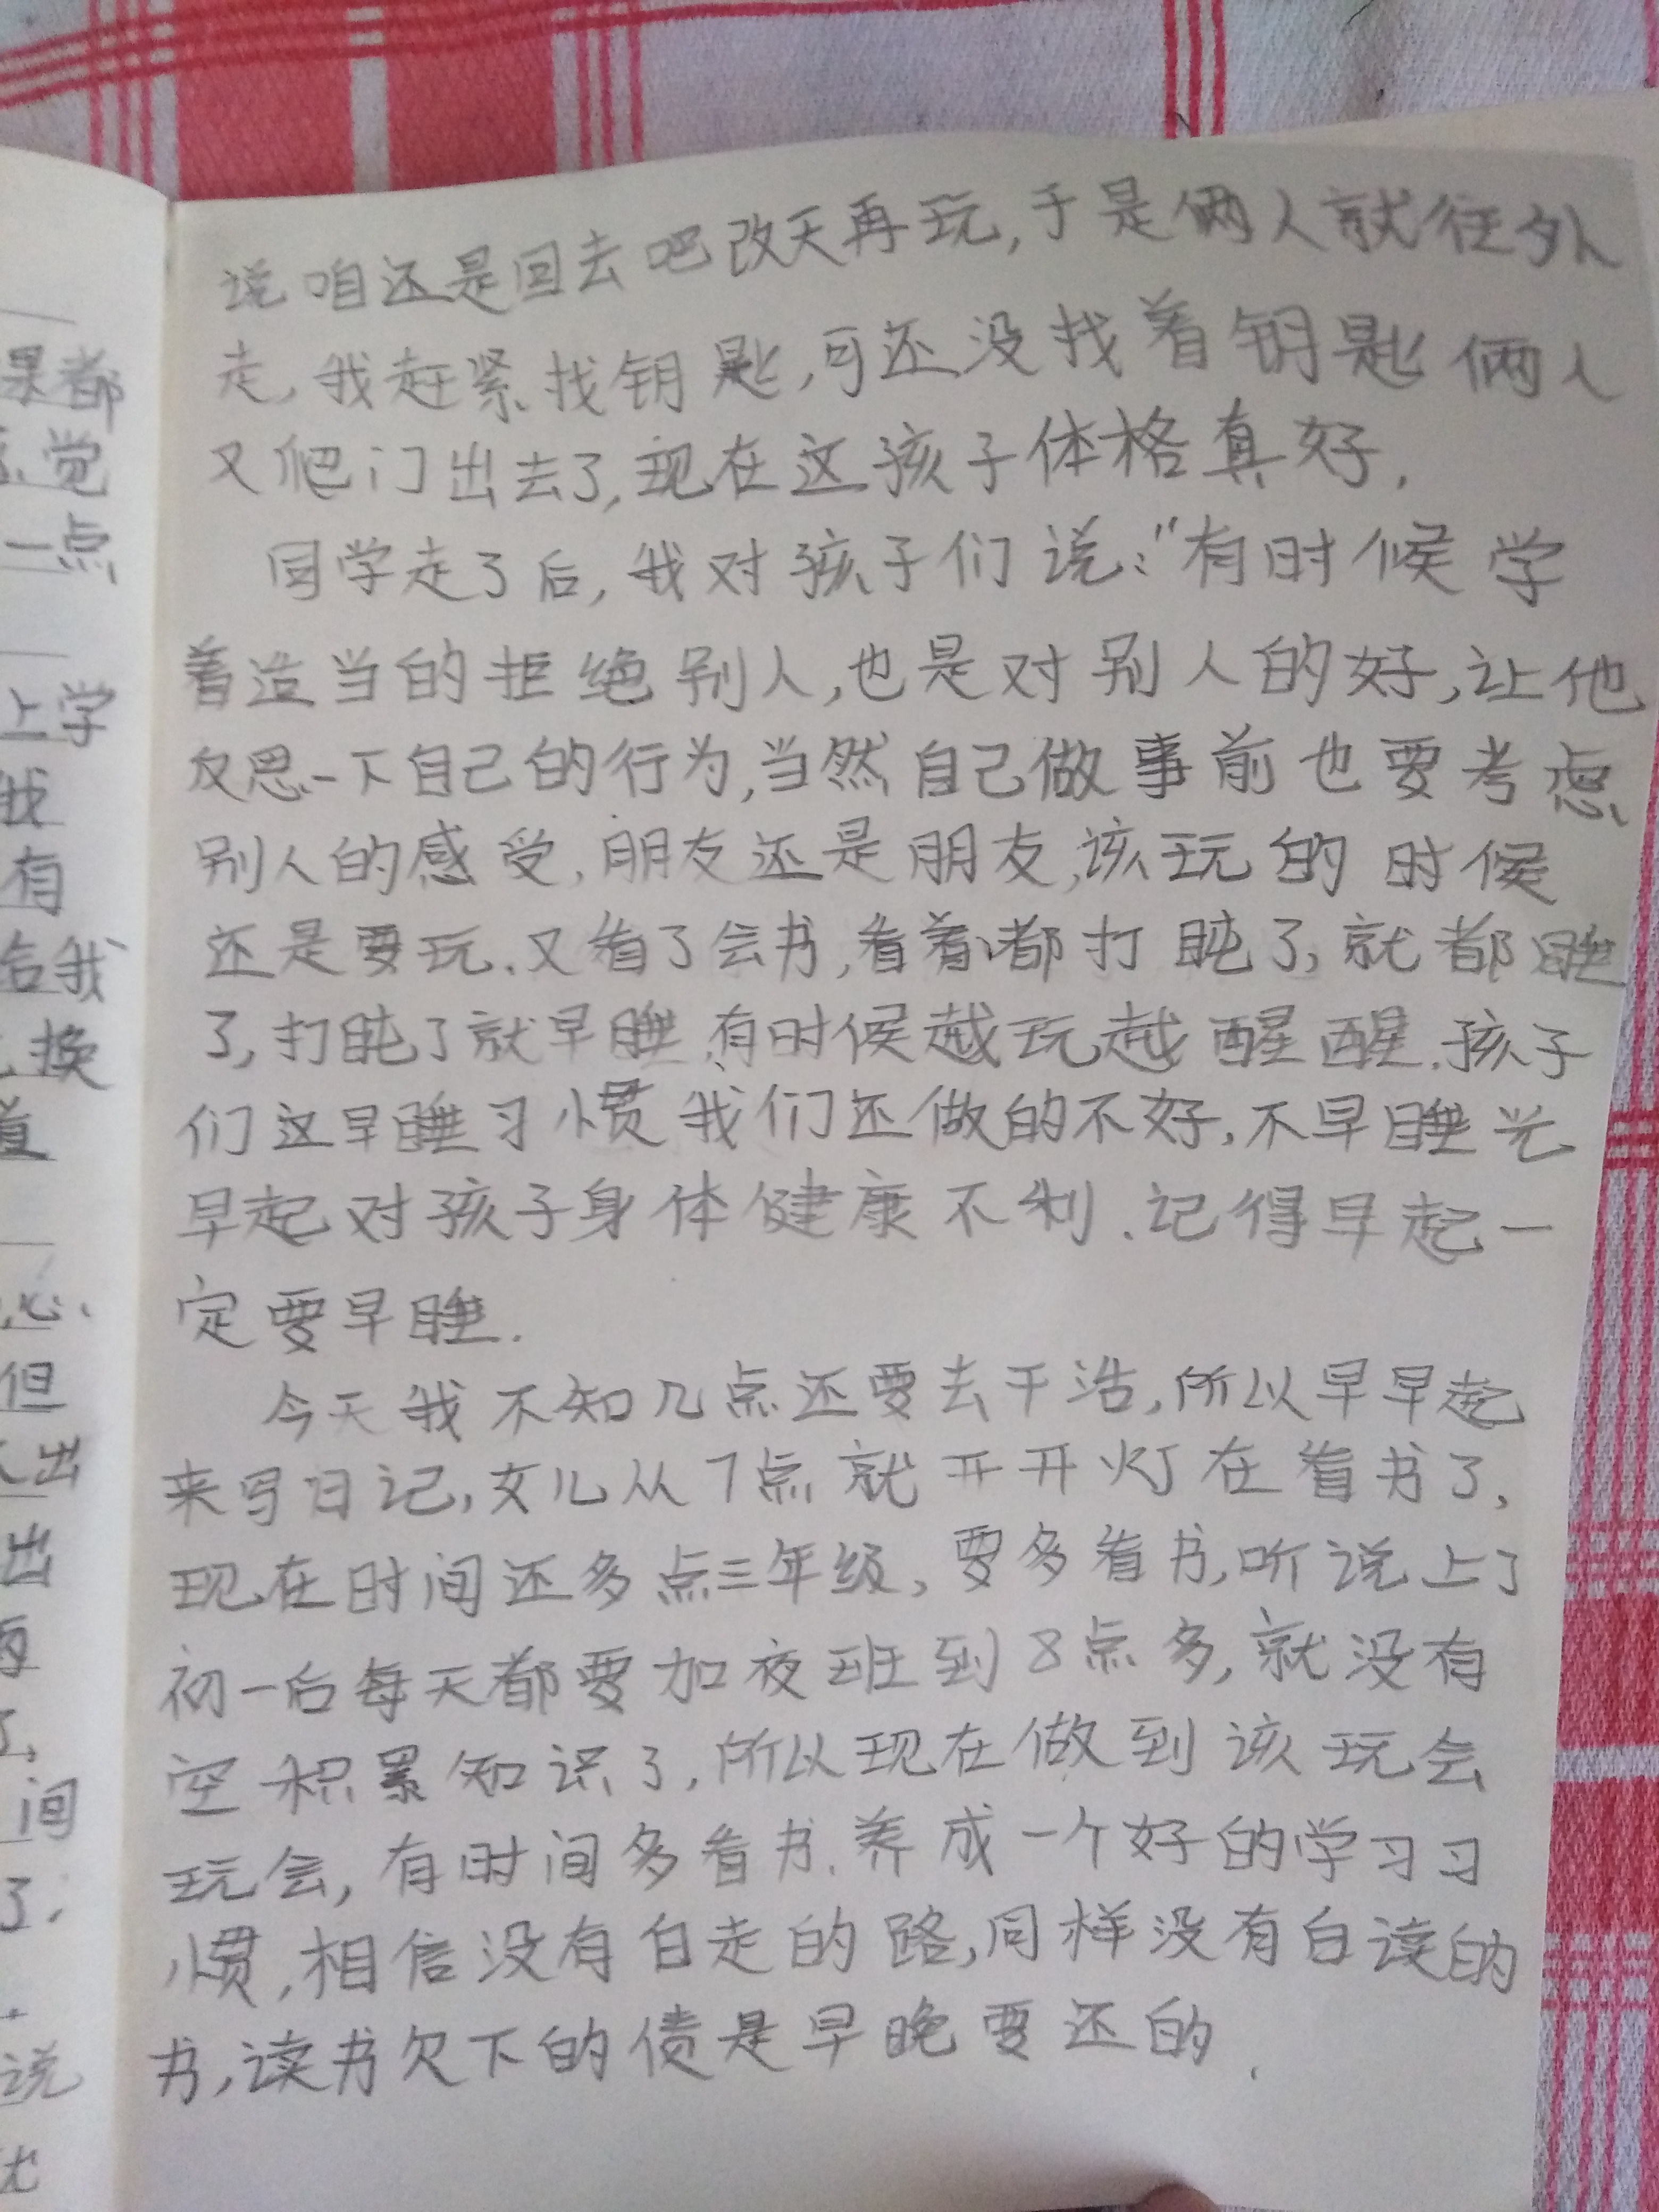 说咱还是回去吧改天再玩,于是俩人就往外
走,我赶紧找钥匙,可还没找着钥匙俩人
又爬门出去了,现在这孩子体格真好.
同学走了后,我对孩子们说:"有时候学
着适当的拒绝别人,也是对别人的好,让他
反思一下自己的行为,当然自己做事前也要考虑
别人的感受,朋友还是朋友,该玩的时候
还是要玩.又看了会书,看着都打盹了,就都睡
了,打盹了就早睡,有时候越玩越醒醒.孩子
们这早睡习惯我们还做的不好,不早睡光
早起对孩子身体健康不利.记得早起一
定要早睡.
今天我不知几点还要去干活,所以早早起
来写日记,女儿从7点就开开灯在看书了,
现在时间还多点三年级,要多看书,听说上了
初一后每天都要加夜班到8点多,就没有
空积累知识了,所以现在做到该玩会
玩会,有时间多看书.养成一个好的学习习
惯,相信没有白走的路,同样没有白读的
书,读书欠下的债是早晚要还的.
果都
觉
一点
上学
我
有
给我
换
直
心、
但
出
出
再
了,
间
了.
说